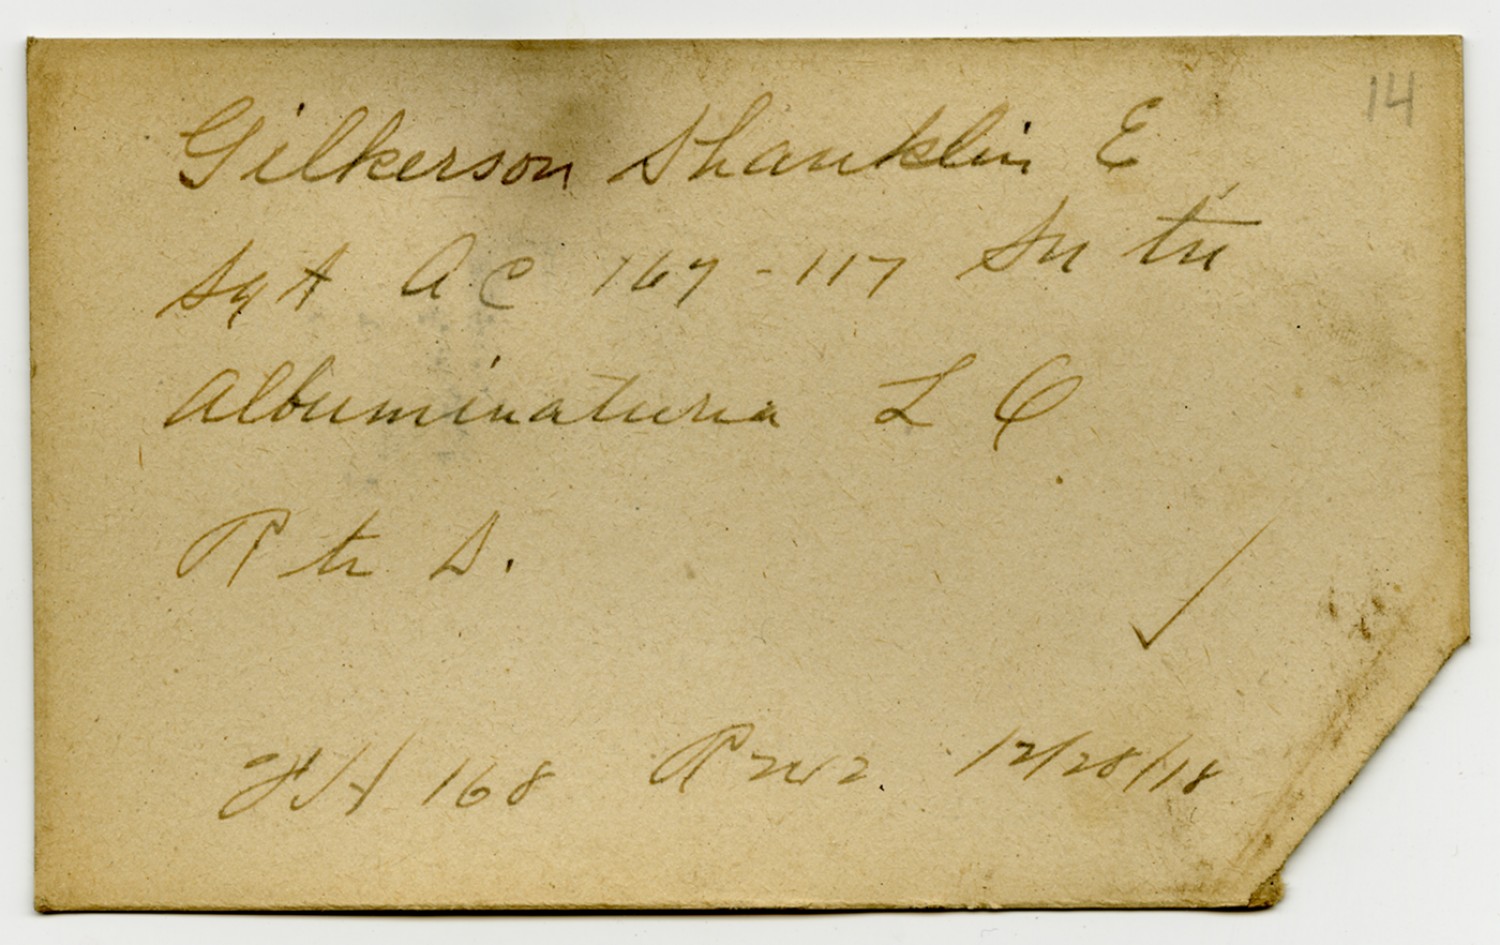 14
Gilkerson Shanklin E
Sgt A.C 167-117 Sn tn
Albuminaturia L O
R tr D.
FH 168 12/28/18